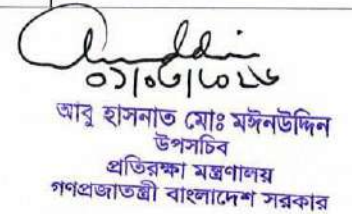 ০১|০৩|২০২৬
আবু হাসনাত মোঃ মঈনউদ্দিন
উপসচিব
প্রতিরক্ষা মন্ত্রণালয়
গণপ্রজাতন্ত্রী বাংলাদেশ সরকার